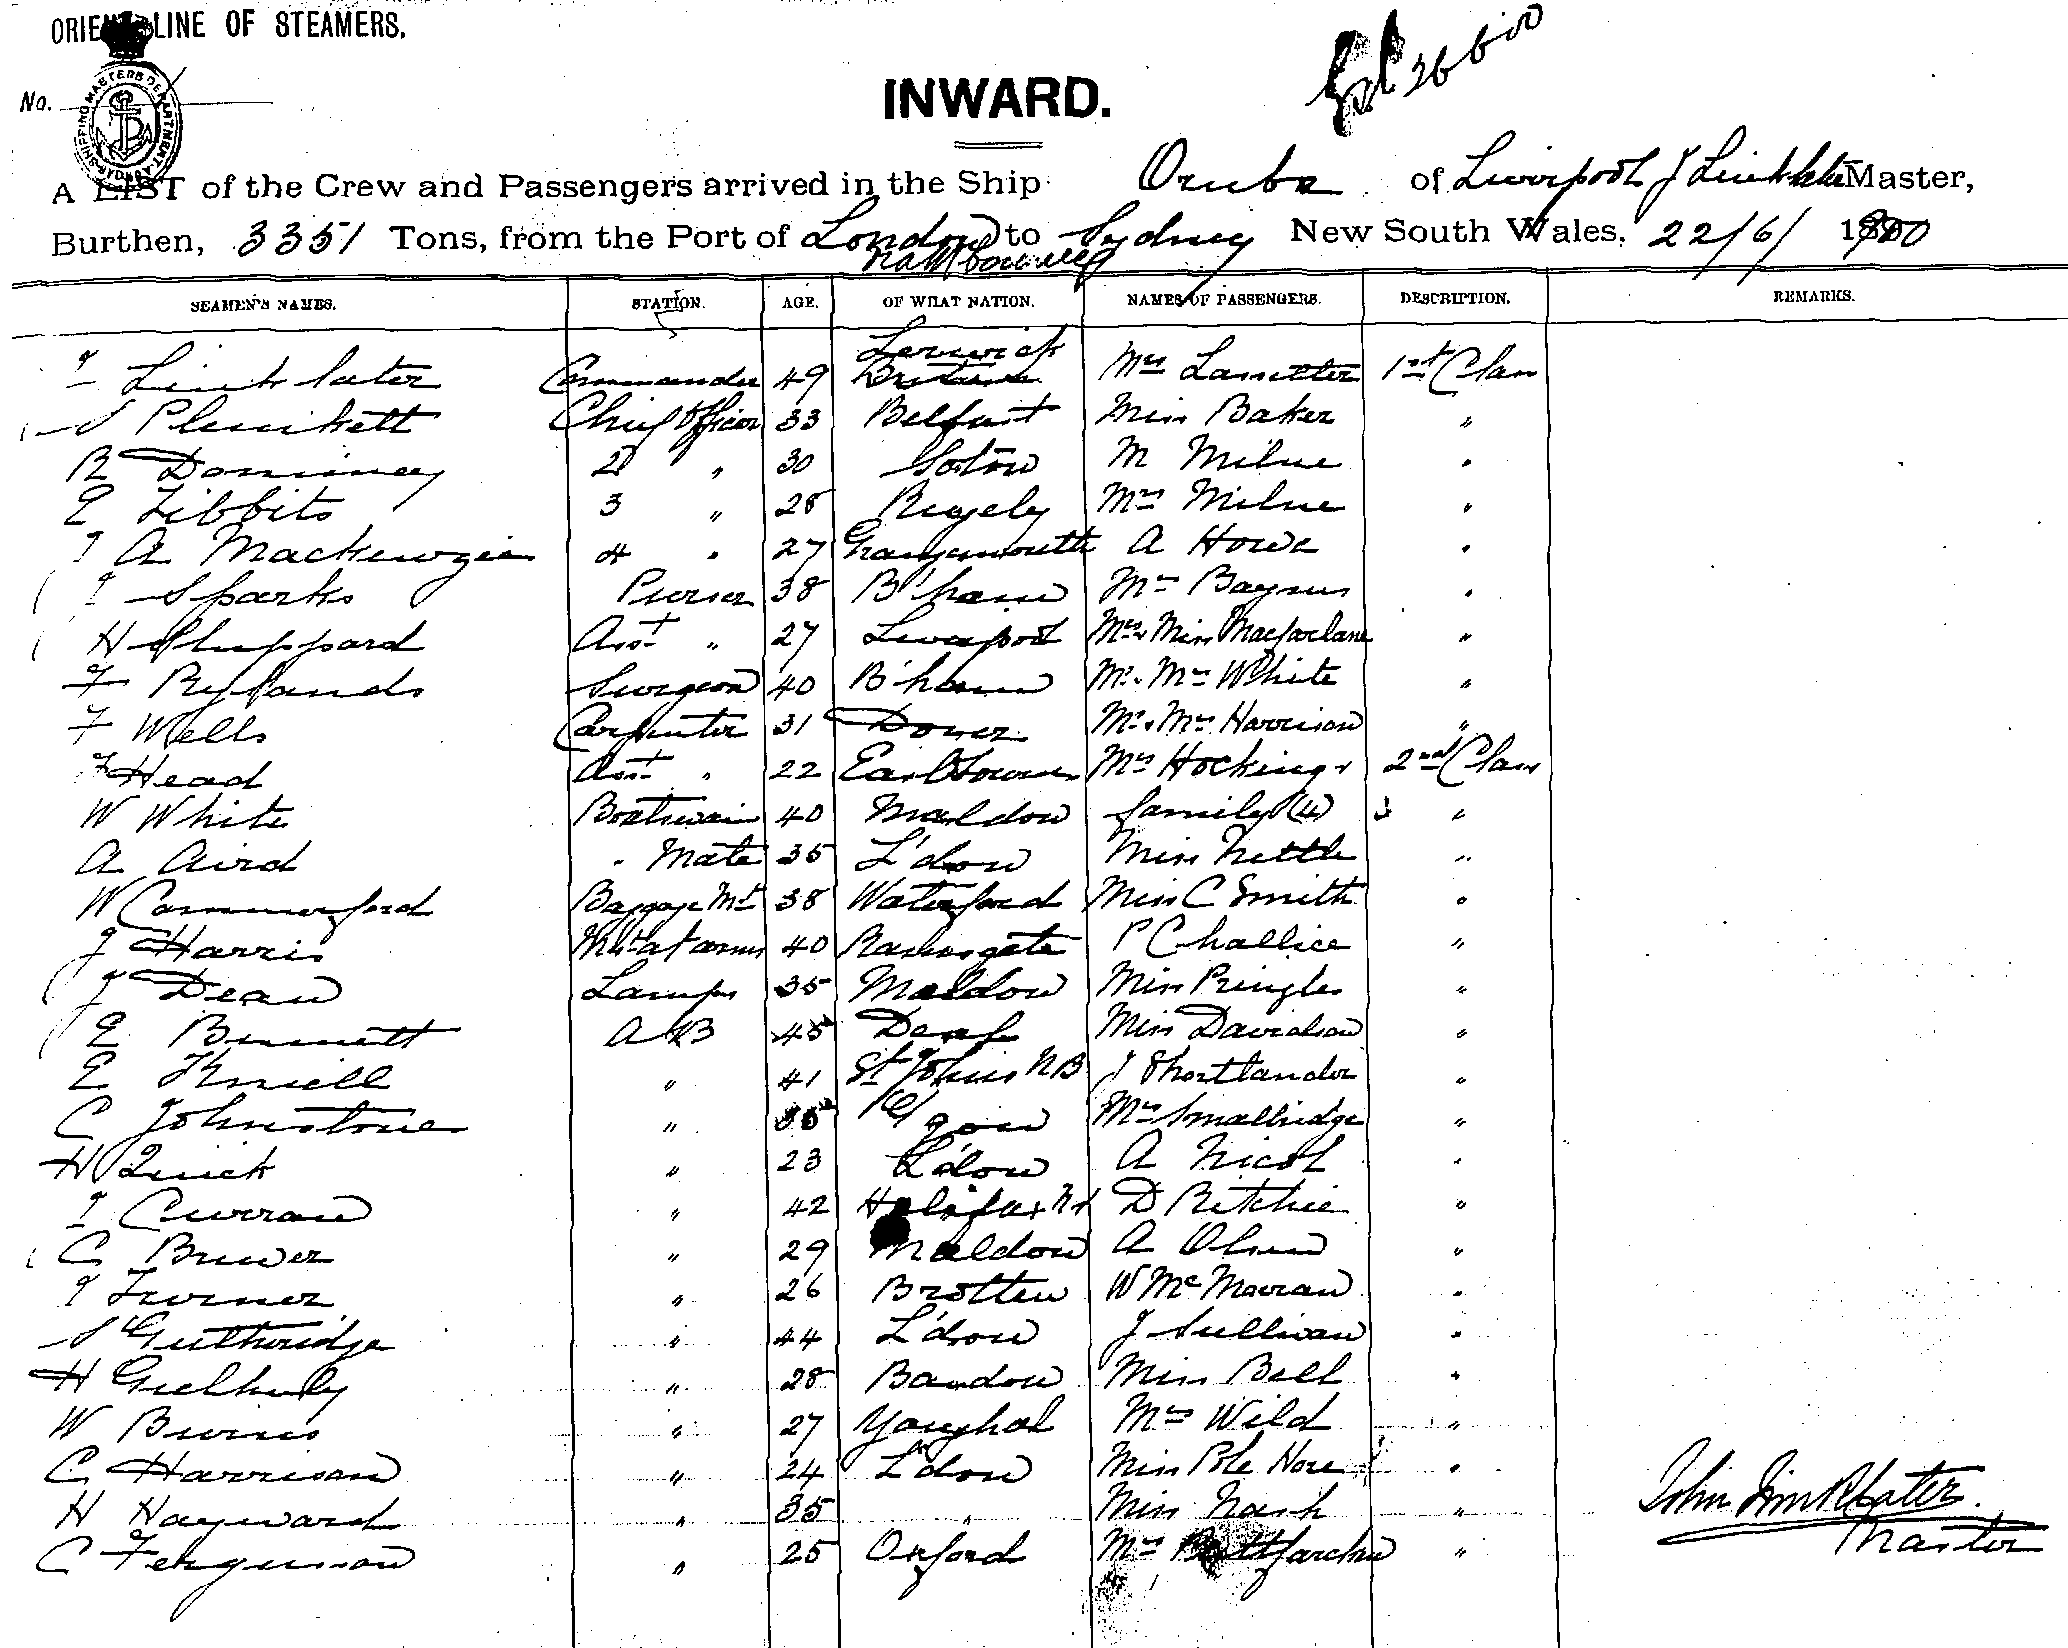 ORIENT LINE OF STEAMERS.
No.
INWARD.
A LIST of the Crew and Passengers arrived in the Ship Oruba of Liverpool J Linklater Master,
Burthen, 3351 Tons, from the Port of London to Sydney New South Wales, 22/6/ 1900
SEAMEN'S NAMES. STATION. AGE. OF WHAT NATION. NAMES OF PASSENGERS. DESCRIPTION. REMARKS.
J Linklater Commander 49 Lerwick Mrs 1st Class
Plunkett Chief Officer 33 Belfast Miss Baker "
R Dominey 2 " 30 Soton M Milne "
E Tibbits 3 " 28 Rugely Mrs Milne "
J A Mackenzie 4 " 27 Grangemouth A Howe "
J Sparks Purser 38 B'ham "
H Sheppard Asst " 27 Liverpool Mrs & Miss Macfarlane "
F Rylands Surgeon 40 B'ham Mr & Mrs White "
F Wells Carpenter 31 Dover Mr & Mrs Harrison "
F Head Asst " 22 Mrs Hocking & 2nd Class
W White Boatswain 40 Maldon family (4) "
A Aird " Mate 35 L'don Miss Nettle "
W Commerford Baggage Mr 38 Waterford Miss C Smith "
J Harris Mst at arms 40 Ramsgate P Challice "
J Dean Lamps 35 Maldon Miss Pringle "
E Bennett A B 45 Miss Davidson "
E Knell " 41 St Johns NB J Shortlander "
C Johnstone " 35 G'gow Mrs Smallridge "
H Quick " 23 L'don A Nicol "
J Curran " 42 Halifax NS D Ritchie "
C Brewer " 29 Maldon A Olsen "
J Turner " 26 Brotten W McMorran "
S Guthridge " 44 L'don J Sullivan "
H " 28 Bandon Miss Bell "
W Burns " 27 Youghal Mrs Wild "
C Harrison " 24 L'don Miss Pole Hore "
H Hayward " 35 " Miss Nash "
C Ferguson " 25 Oxford Mrs "
John Linklater.
Master